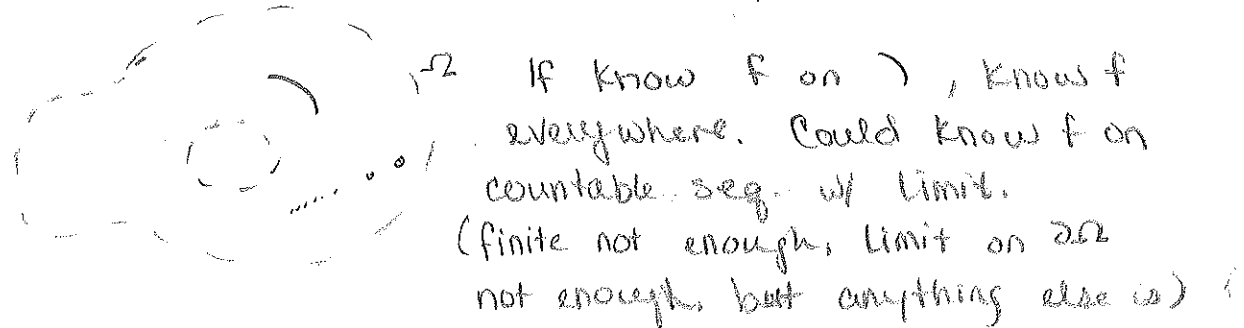 Ω If know f on ), know f
everywhere. Could know f on
countable seq. w/ limit.
(finite not enough, limit on ∂Ω
not enough, but anything else is)